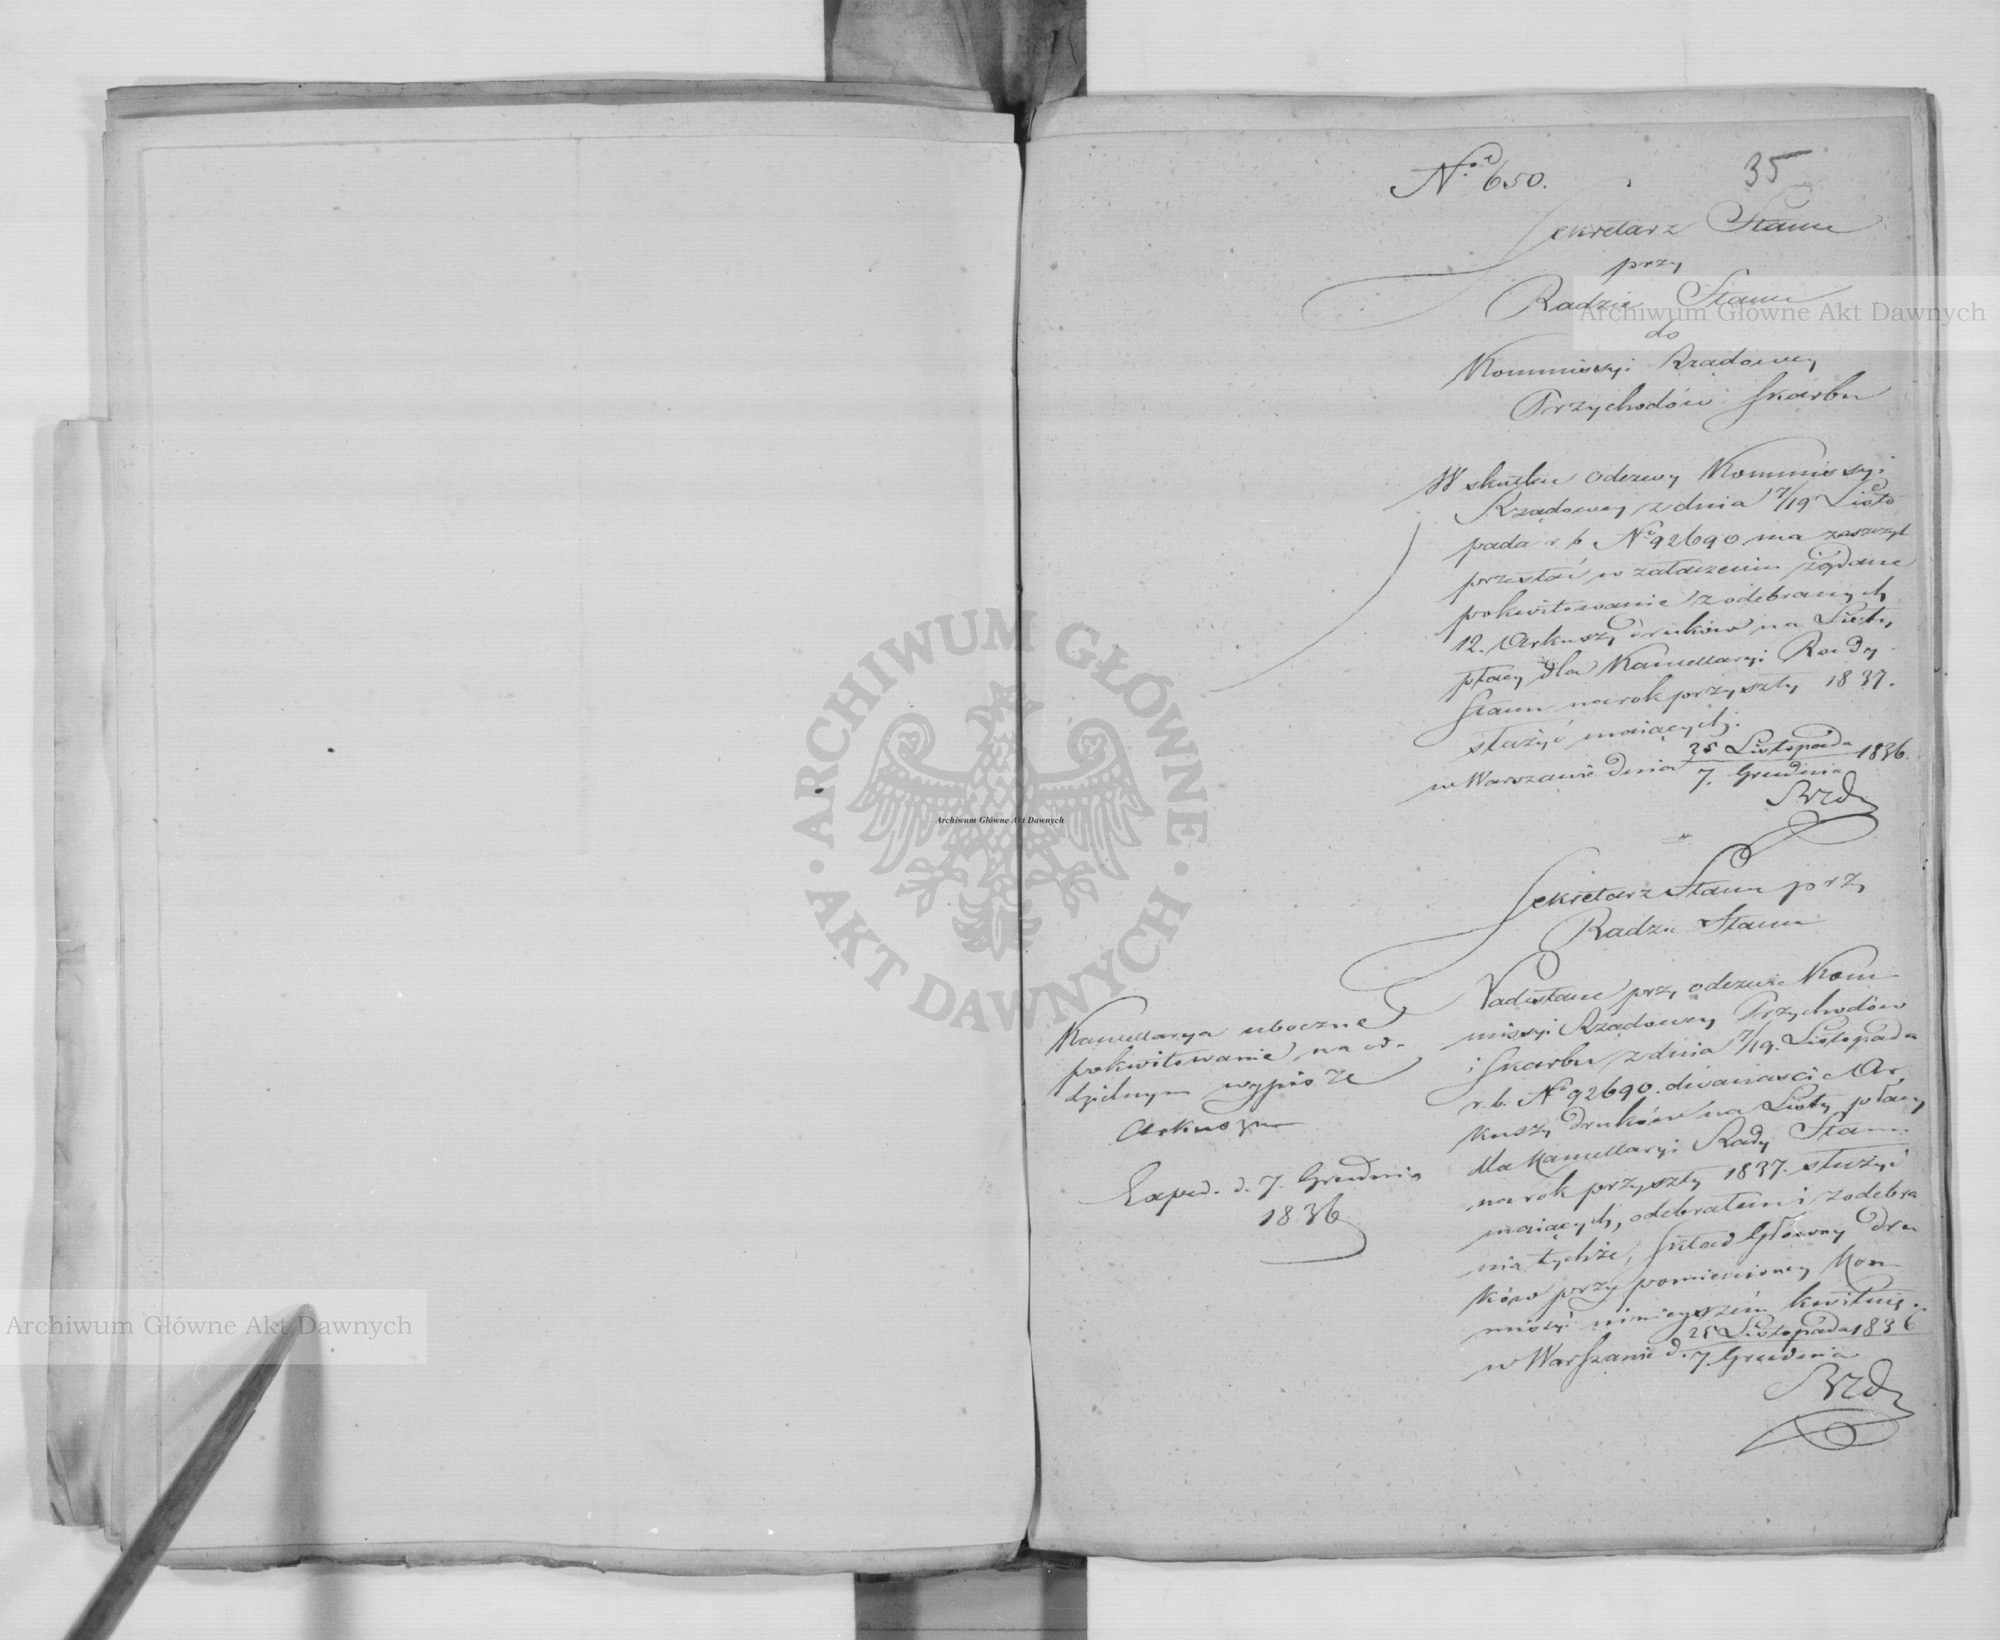 35
Nº 650.
Sekretarz Stanu
przy
Radzie Stanu
do
Kommissyi Rządowey
Przychodów i Skarbu
W skutku odezwy Kommissyi
Rządowey z dnia 7/19 Listo
pada r. b. Nº 92690 ma zaszczyt
przesłać w załączeniu żądane
pokwitowanie z odebranych
12. Arkuszy druków na Listy
płacy dla Kancellaryi Rady
Stanu na rok przyszły 1837.
służyć maiących.
w Warszawie dnia 25 Listopada / 7. Grudnia 1836.
Sekretarz Stanu przy
Radzie Stanu
Nadesłane przy odezwie Kom
missyi Rządowey Przychodów
i Skarbu z dnia 7/19. Listopada
r. b. Nº 92690. dwanaście Ar
kuszy druków na Listy płacy
dla Kancellaryi Rady Stanu
na rok przyszły 1837. służyć
maiących, odebrałem i z odebra
nia tychże, Skład Główny dru
ków przy pomienioney Kom
missyi ninieyszém kwituię.
w Warszawie d. 25 Listopada / 7. Grudnia 1836
Kancellarya uboczne
pokwitowanie na od-
dzielnym wypisze
Arkuszu
Exped. d. 7. Grudnia
1836
Archiwum Główne Akt Dawnych
Archiwum Główne Akt Dawnych
Archiwum Główne Akt Dawnych
ARCHIWUM GŁÓWNE · AKT DAWNYCH ·